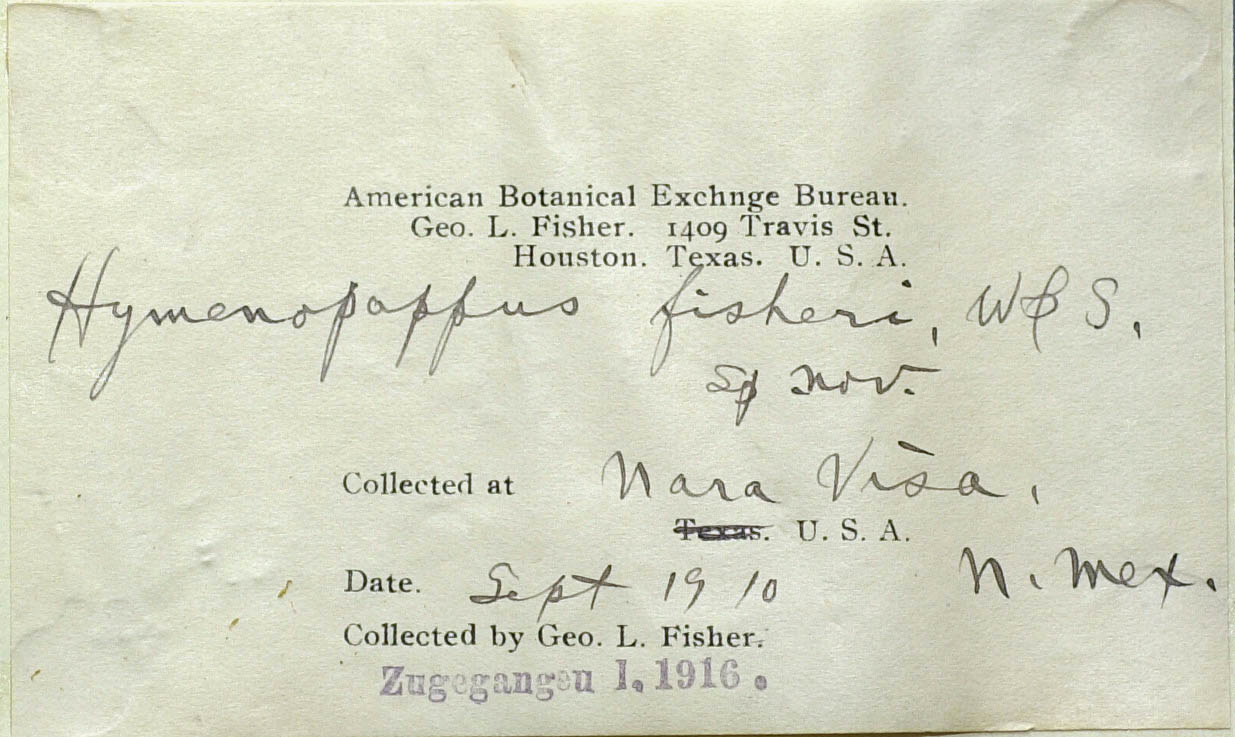 American Botanical Exchnge Bureau.
Geo. L. Fisher. 1409 Travis St.
Houston. Texas. U. S. A.
Hymenopappus fisheri, W & S.
Sp nov.
Collected at Nara Visa,
Texas. U. S. A.
N. Mex.
Date. Sept 1910
Collected by Geo. L. Fisher.
Zugegangen I. 1916.